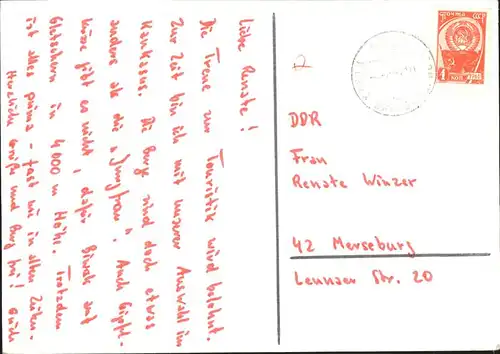 Liebe Renate!
Die Treue zur Touristik wird belohnt.
Zur Zeit bin ich mit unserer Auswahl im
Kaukasus. Die Berge sind doch etwas
anders als die "Jungfrau". Auch Gipfel-
kreuze gibt es nicht, dafür Biwak auf
Gletschern in 4000 m Höhe. Trotzdem
ist alles prima - fast wie in alten Zeiten.
Herzliche Grüße und Berg frei!
ПОЧТА СССР
4 КОП
DDR
Frau
Renate Winzer
42 Merseburg
Lennaer Str. 20